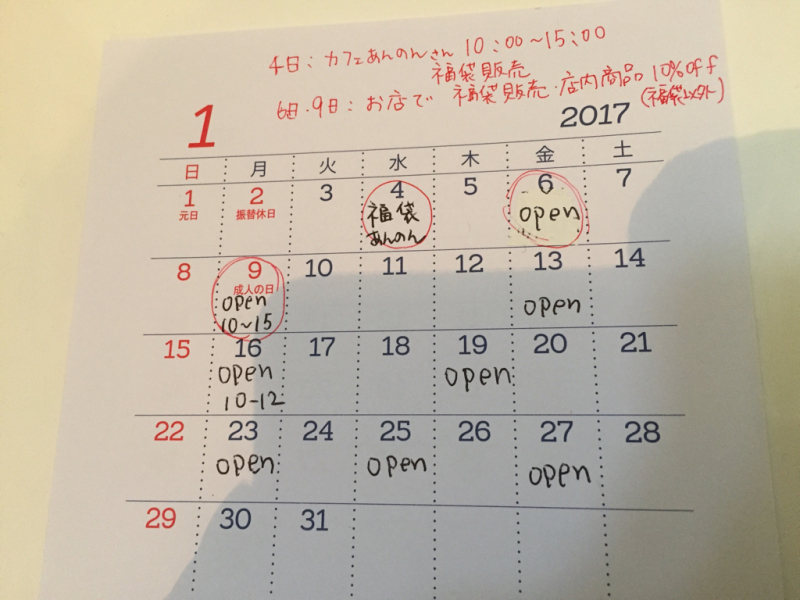 4日：カフェあんのんさん 10：00〜15：00
福袋販売
6日・9日：お店で 福袋販売・店内商品10%off
(福袋以外)
1 2017
日 月 火 水 木 金 土
1 2 3 4 5 6 7
元日 振替休日 福袋 open
あんのん
8 9 10 11 12 13 14
成人の日
open open
10〜15
15 16 17 18 19 20 21
open open
10-12
22 23 24 25 26 27 28
open open open
29 30 31